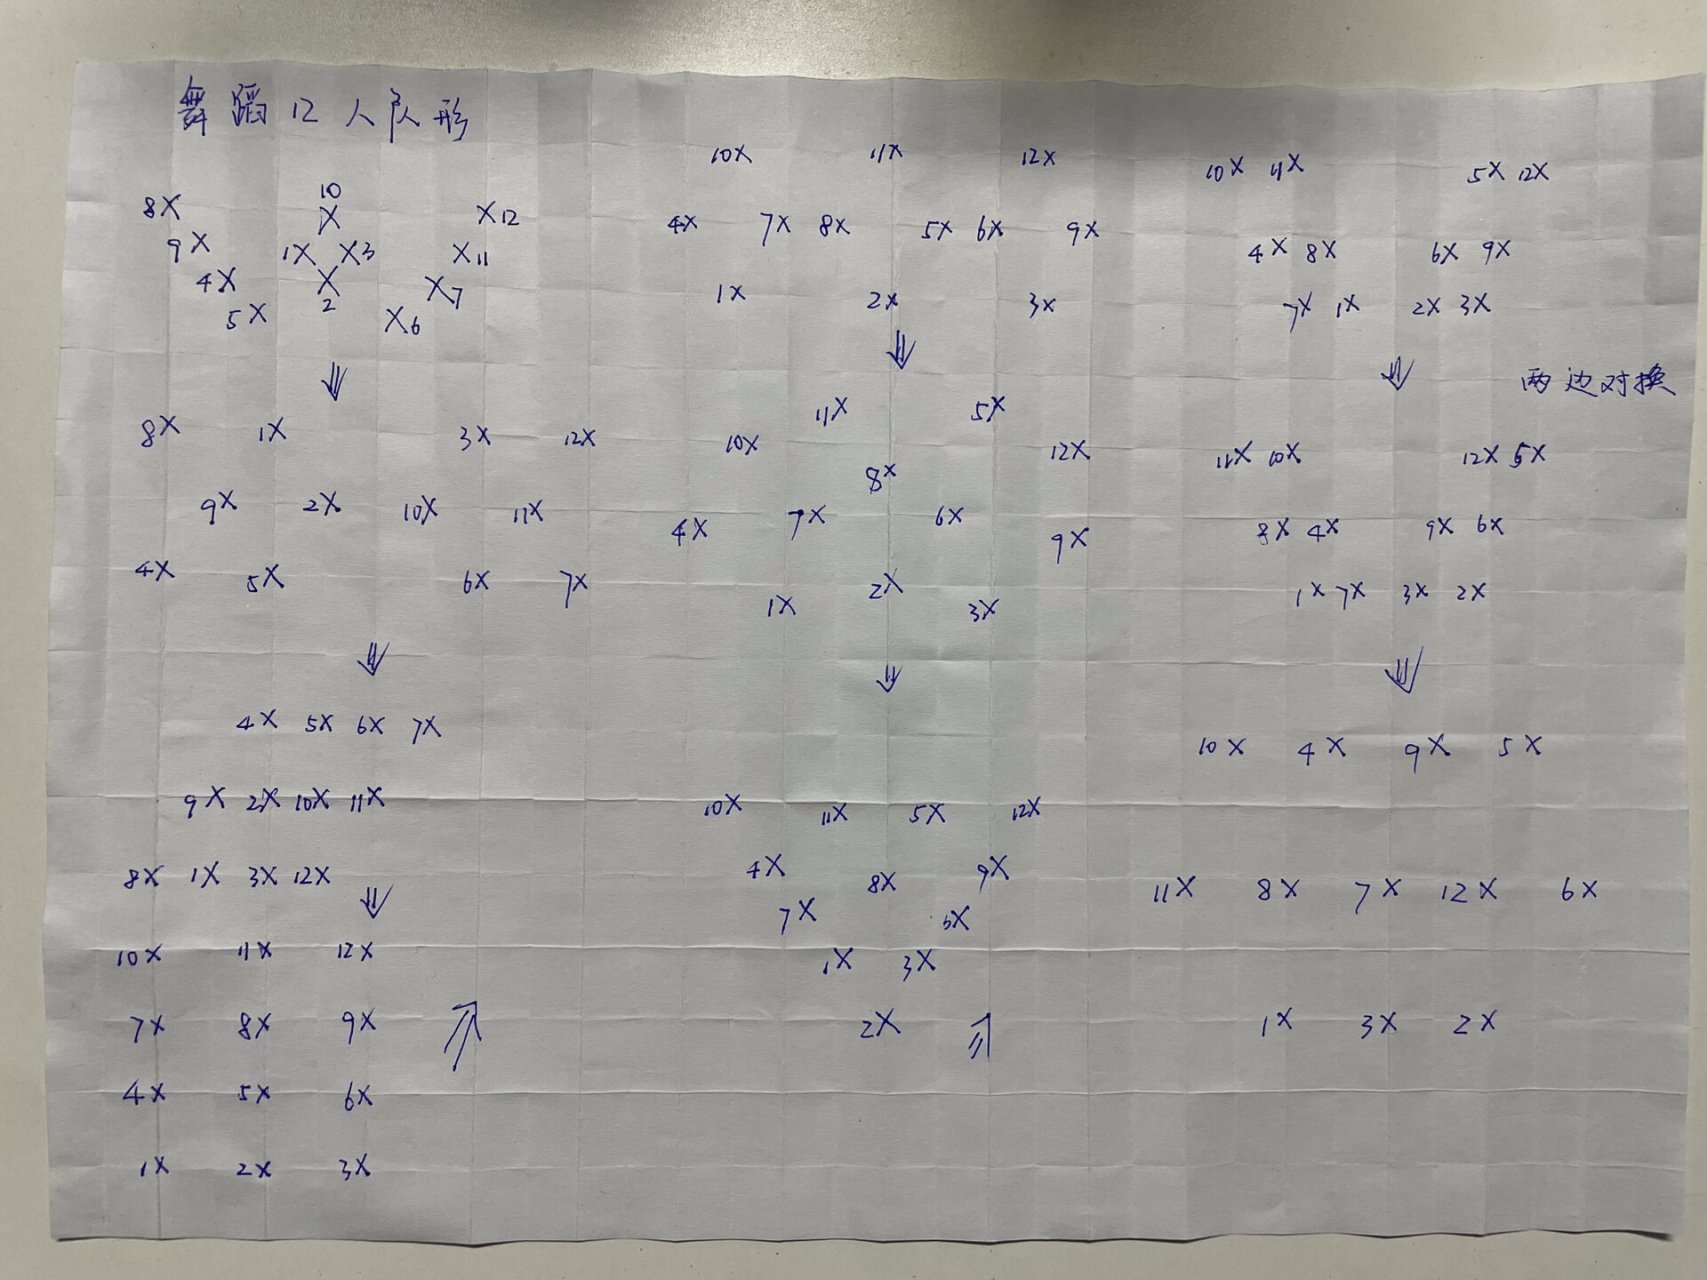 舞蹈12人队形
8X 10X X12
9X 1X X3 X11
4X X2 X7
5X X6
⇓
8X 1X 3X 12X
9X 2X 10X 11X
4X 5X 6X 7X
⇓
4X 5X 6X 7X
9X 2X 10X 11X
8X 1X 3X 12X
⇓
10X 11X 12X
7X 8X 9X
4X 5X 6X
1X 2X 3X
⇗
10X 11X 12X
4X 7X 8X 5X 6X 9X
1X 2X 3X
⇓
11X 5X
10X 12X
8X
4X 7X 6X 9X
1X 2X 3X
⇓
10X 11X 5X 12X
4X 8X 9X
7X 6X
1X 3X
2X
⇗
10X 11X 5X 12X
4X 8X 6X 9X
7X 1X 2X 3X
⇓ 两边对换
11X 10X 12X 5X
8X 4X 9X 6X
1X 7X 3X 2X
⇓
10X 4X 9X 5X
11X 8X 7X 12X 6X
1X 3X 2X